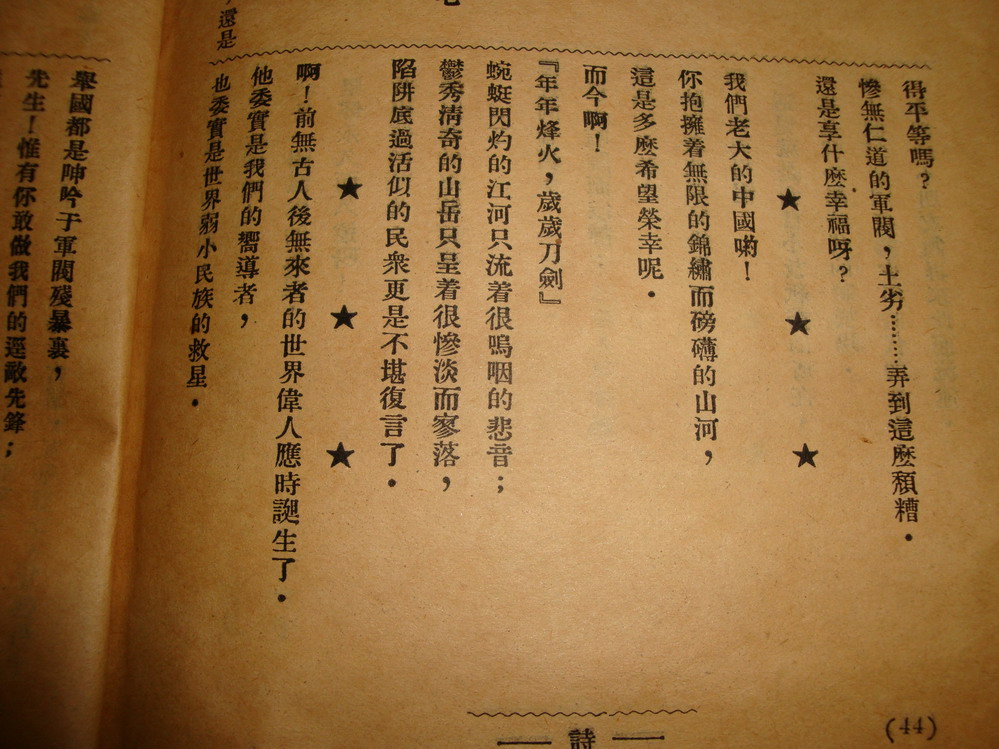 得平等嗎?
慘無仁道的軍閥，土劣………弄到這麽頹糟．
還是享什麽幸福呀?
★ ★ ★
我們老大的中國喲！
你抱擁着無限的錦繡而磅礴的山河，
這是多麽希望榮幸呢．
而今啊！
『年年烽火，歲歲刀劍』
蜿蜒閃灼的江河只流着很嗚咽的悲音；
鬱秀淸奇的山岳只呈着很慘淡而寥落，
陷阱底過活似的民衆更是不堪復言了．
★ ★ ★
啊！前無古人後無來者的世界偉人應時誕生了．
他委實是我們的嚮導者，
也委實是世界弱小民族的救星．
還是
舉國都是呻吟于軍閥殘暴裏，
先生！惟有你敢做我們的逕敵先鋒；
詩
(44)